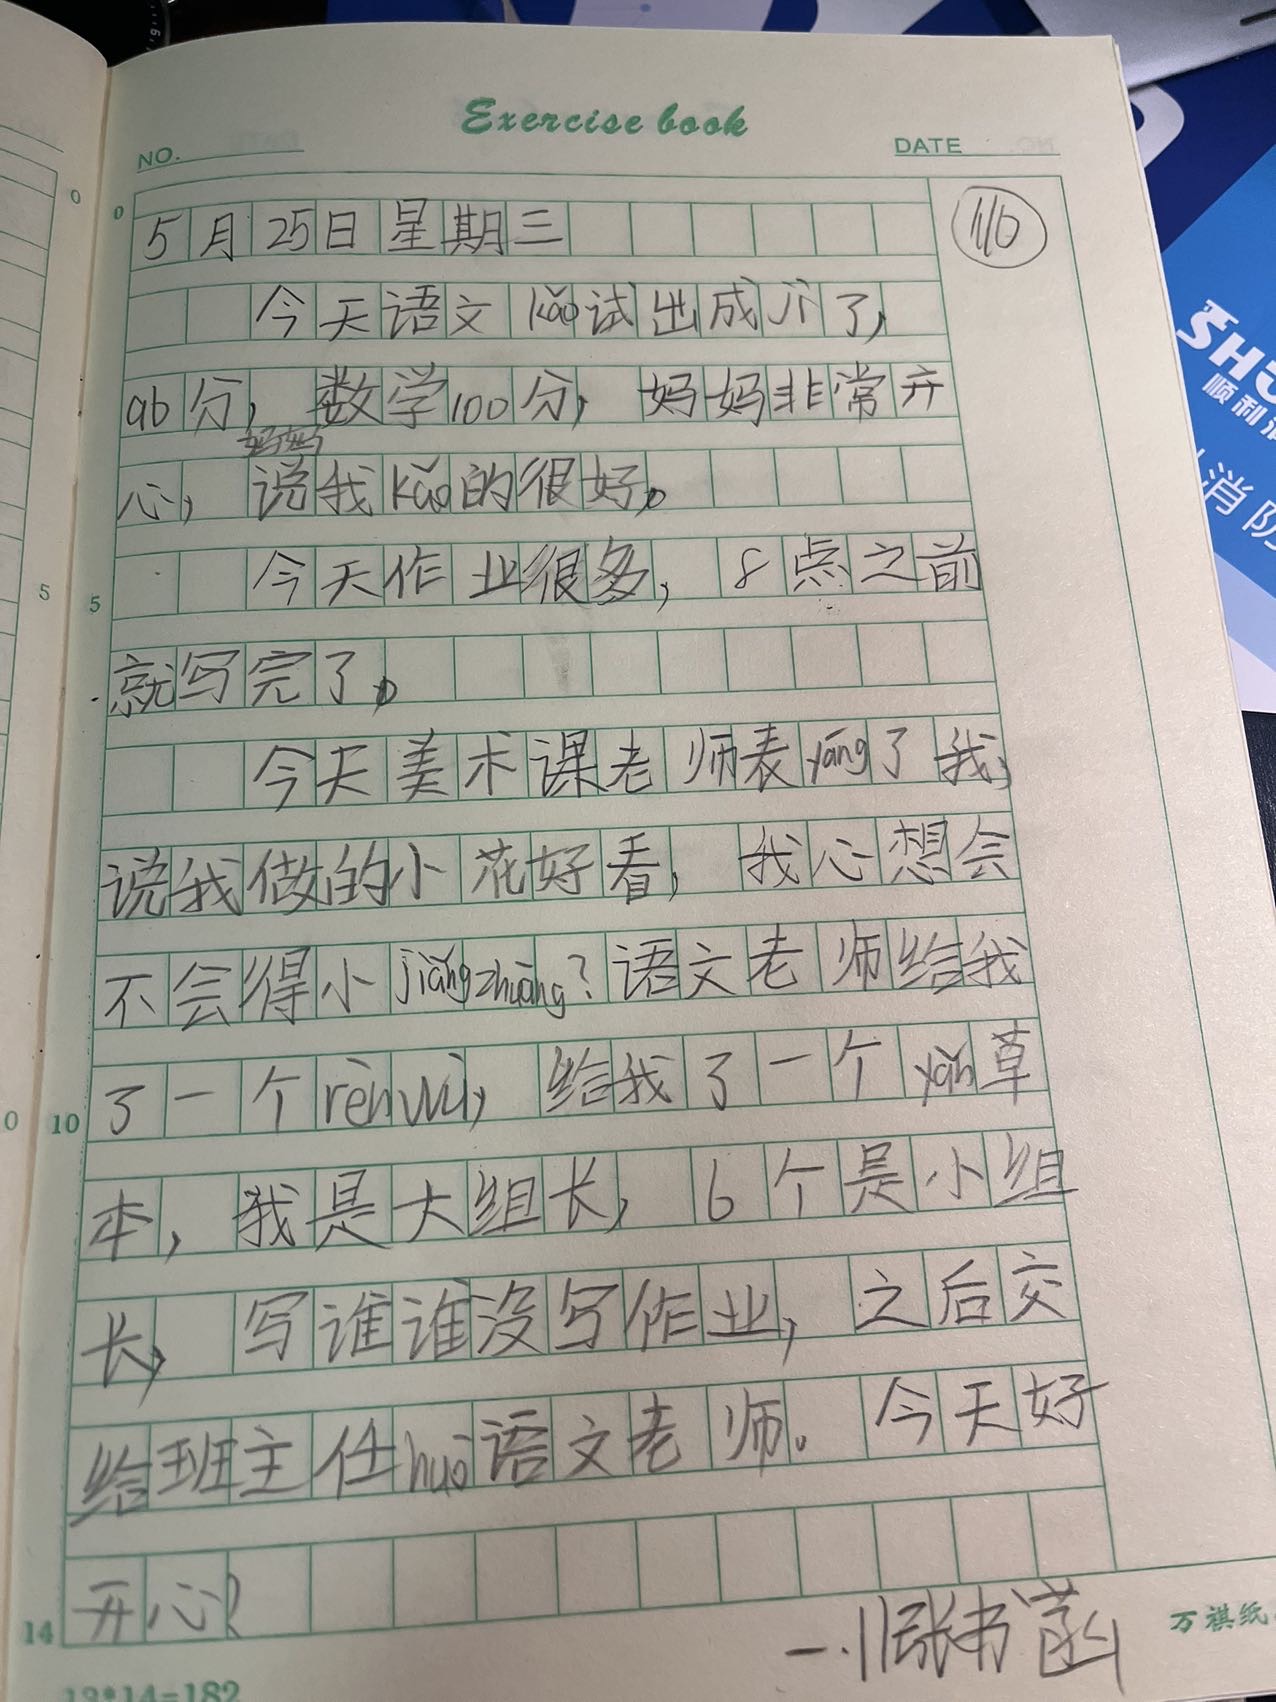 Exercise book
NO.
DATE
0
0
5月25日星期三
116
今天语文kǎo试出成jì了,
96分,数学100分,妈妈非常开
妈妈
心,说我kǎo的很好。
今天作业很多,8点之前
5
5
就写完了。
今天美术课老师表yáng了我,
说我做的小花好看,我心想会
不会得小jiǎngzhuàng?语文老师给我
了一个rènwù,给我了一个yǎn草
10
本,我是大组长,6个是小组
长,写谁谁没写作业,之后交
给班主任huò语文老师。今天好
开心?
14
一.11张书菡
万祺纸
13*14=182
SHU
顺利
消防